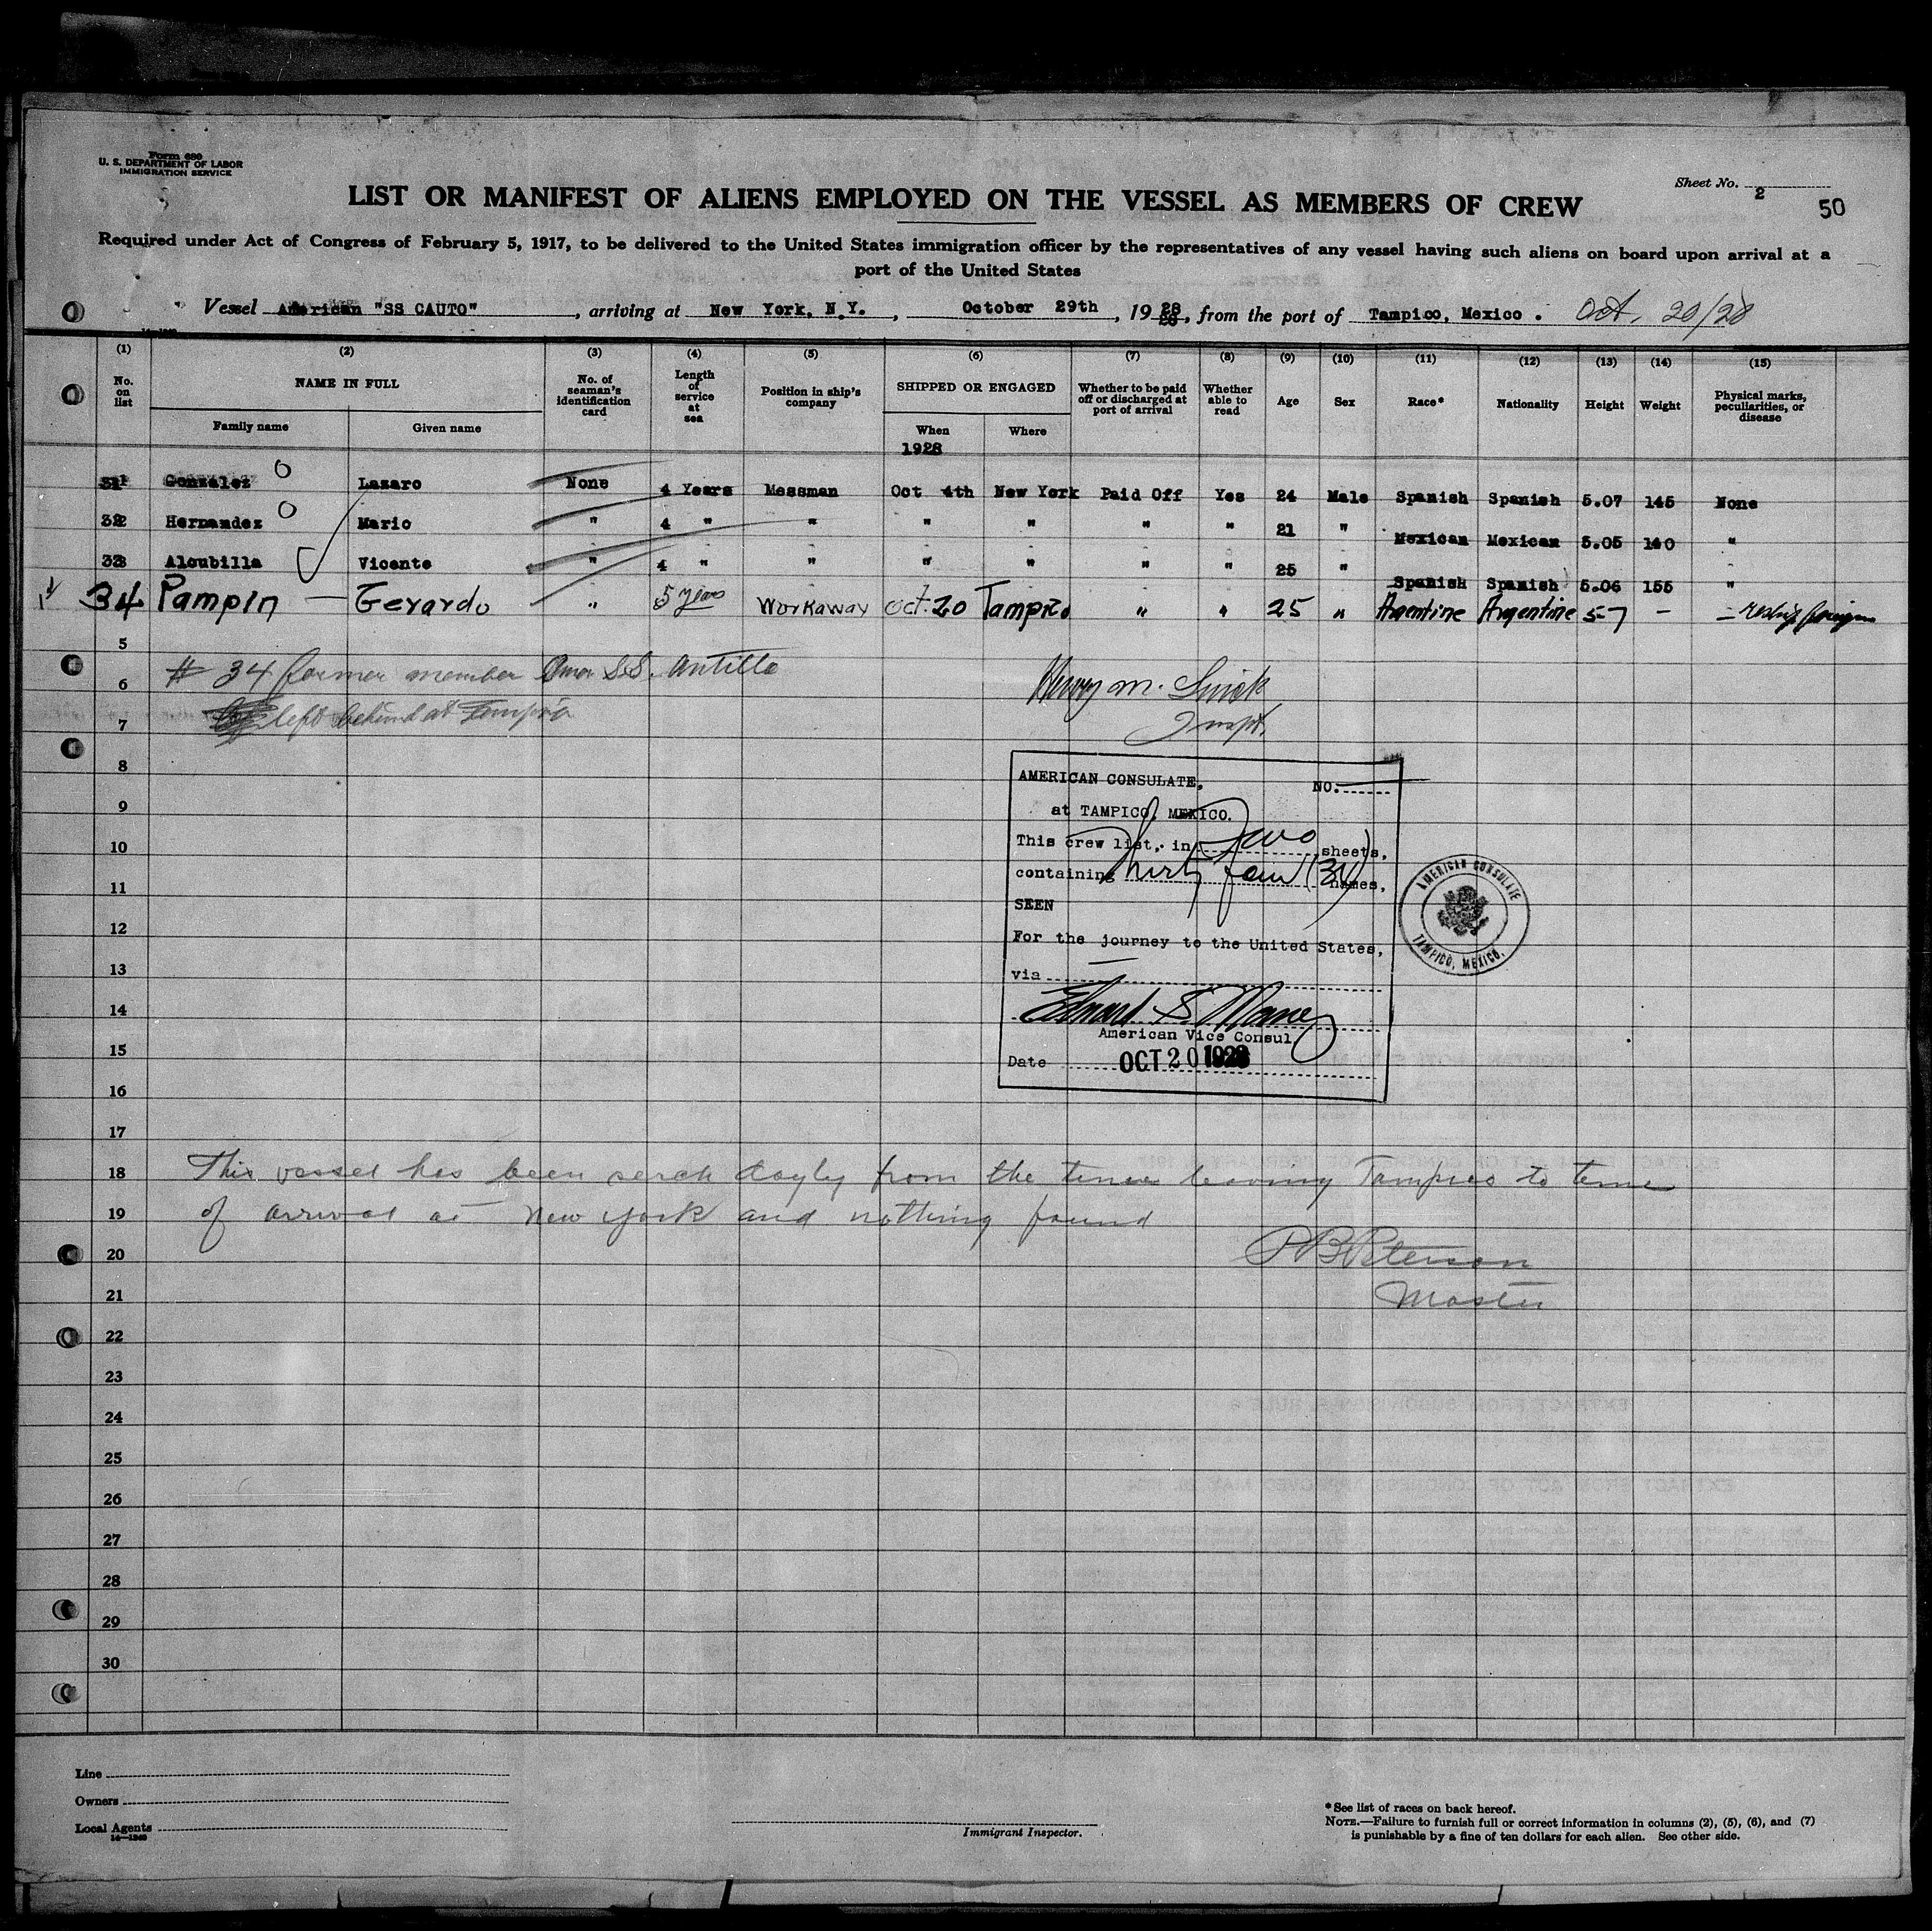 Form 680
U. S. DEPARTMENT OF LABOR
IMMIGRATION SERVICE
Sheet No. 2
50
LIST OR MANIFEST OF ALIENS EMPLOYED ON THE VESSEL AS MEMBERS OF CREW
Required under Act of Congress of February 5, 1917, to be delivered to the United States immigration officer by the representatives of any vessel having such aliens on board upon arrival at a
port of the United States
Vessel American "SS CAUTO", arriving at New York, N.Y., October 29th, 1928, from the port of Tampico, Mexico. Oct. 20/28
(1) (2) (3) (4) (5) (6) (7) (8) (9) (10) (11) (12) (13) (14) (15)
No. on list
NAME IN FULL
Family name Given name
No. of seaman's identification card
Length of service at sea
Position in ship's company
SHIPPED OR ENGAGED
When Where
1928
Whether to be paid off or discharged at port of arrival
Whether able to read
Age
Sex
Race*
Nationality
Height
Weight
Physical marks, peculiarities, or disease
31 Gonzalez Lazaro None 4 Years Messman Oct 4th New York Paid Off Yes 24 Male Spanish Spanish 5.07 145 None
32 Hernandez Mario " 4 " " " " " " 21 " Mexican Mexican 5.05 140 "
33 Alcubilla Vicente " 4 " " " " " " 25 " Spanish Spanish 5.06 155 "
34 Pampin — Gerardo " 5 years Workaway Oct. 20 Tampico " " 25 " Argentine Argentine 5-7 — —
5
6
7
# 34 former member Amer S.S. Antilla
left behind at Tampico
Henry M.
Inspt.
8
9
10
11
12
13
14
15
16
17
AMERICAN CONSULATE, NO.
at TAMPICO, MEXICO.
This crew list, in Two sheets,
containing Thirty four (34) names,
SEEN
For the journey to the United States,
via
Edward S. Maney
American Vice Consul
Date OCT 20 1928
AMERICAN CONSULATE
TAMPICO, MEXICO.
18 This vessel has been serch dayly from the time leaving Tampico to time
19 of arrival at New York and nothing found
20 P B Peterson
21 Master
22
23
24
25
26
27
28
29
30
Line
Owners
Local Agents
14—1240
Immigrant Inspector.
*See list of races on back hereof.
NOTE.—Failure to furnish full or correct information in columns (2), (5), (6), and (7)
is punishable by a fine of ten dollars for each alien. See other side.